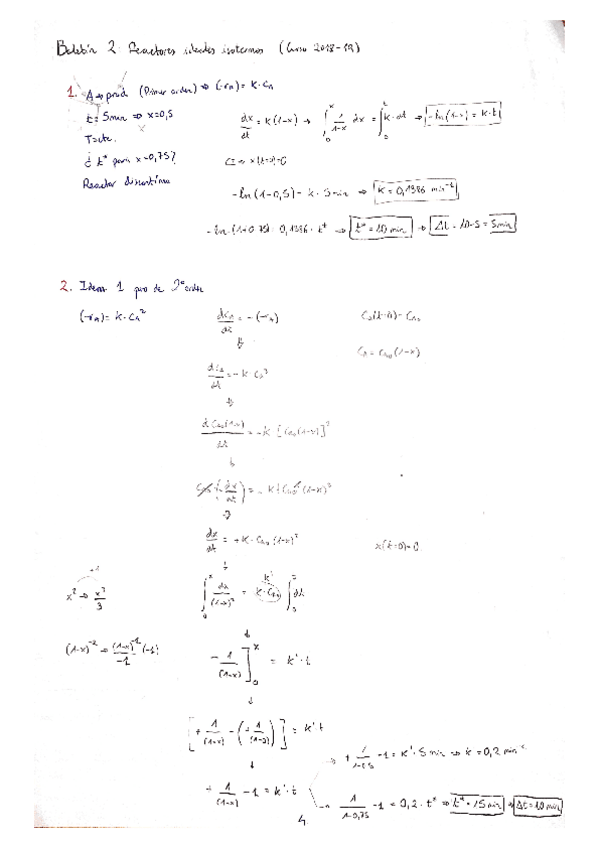 Boletín 2 Reactores ideales isotermos (Curso 2018-19)
1. A → prod (Primer orden) ⇒ (-rA) = K·CA
t = 5min ⇒ x=0,5
T=cte.
¿ t* para x=0,75?
Reactor discontinuo
dx/dt = K(1-x) → ∫₀ˣ 1/(1-x) dx = ∫₀ᵗ K·dt → -ln(1-x) = K·t
CI ⇒ x(t=0)=0
-ln(1-0,5) = K·5min ⇒ K = 0,1386 min⁻¹
-ln(1-0,75) = 0,1386·t* ⇒ t* = 10 min → Δt = 10-5 = 5min
2. Idem 1 pero de 2º orden
(-rA) = K·CA²
dCA/dt = -(-rA)
CA(t=0) = CA0
CA = CA0(1-x)
dCA/dt = -K·CA²
dCA0(1-x)/dt = -K [CA0(1-x)]²
CA0 (- dx/dt) = -K CA0² (1-x)²
dx/dt = +K·CA0(1-x)²
x(t=0)=0
+1
x² → x³/3
∫₀ˣ dx/(1-x)² = K·CA0 ∫₀ᵗ dt
K'
(1-x)⁻² → (1-x)⁻¹/-1 (-1)
- 1/(1-x) ]₀ˣ = K'·t
[ + 1/(1-x) - (+ 1/(1-0)) ] = K'·t
+ 1/(1-x) - 1 = K'·t
+ 1/(1-0,5) - 1 = K'·5 min ⇒ K = 0,2 min⁻¹
1/(1-0,75) - 1 = 0,2·t* ⇒ t* = 15 min ⇒ Δt = 10 min
4